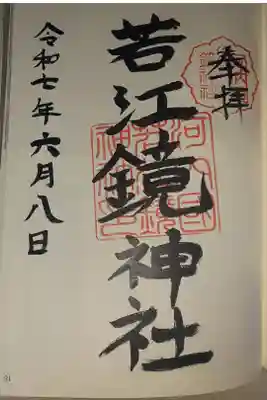 奉拝
若江鏡神社
令和七年六月八日